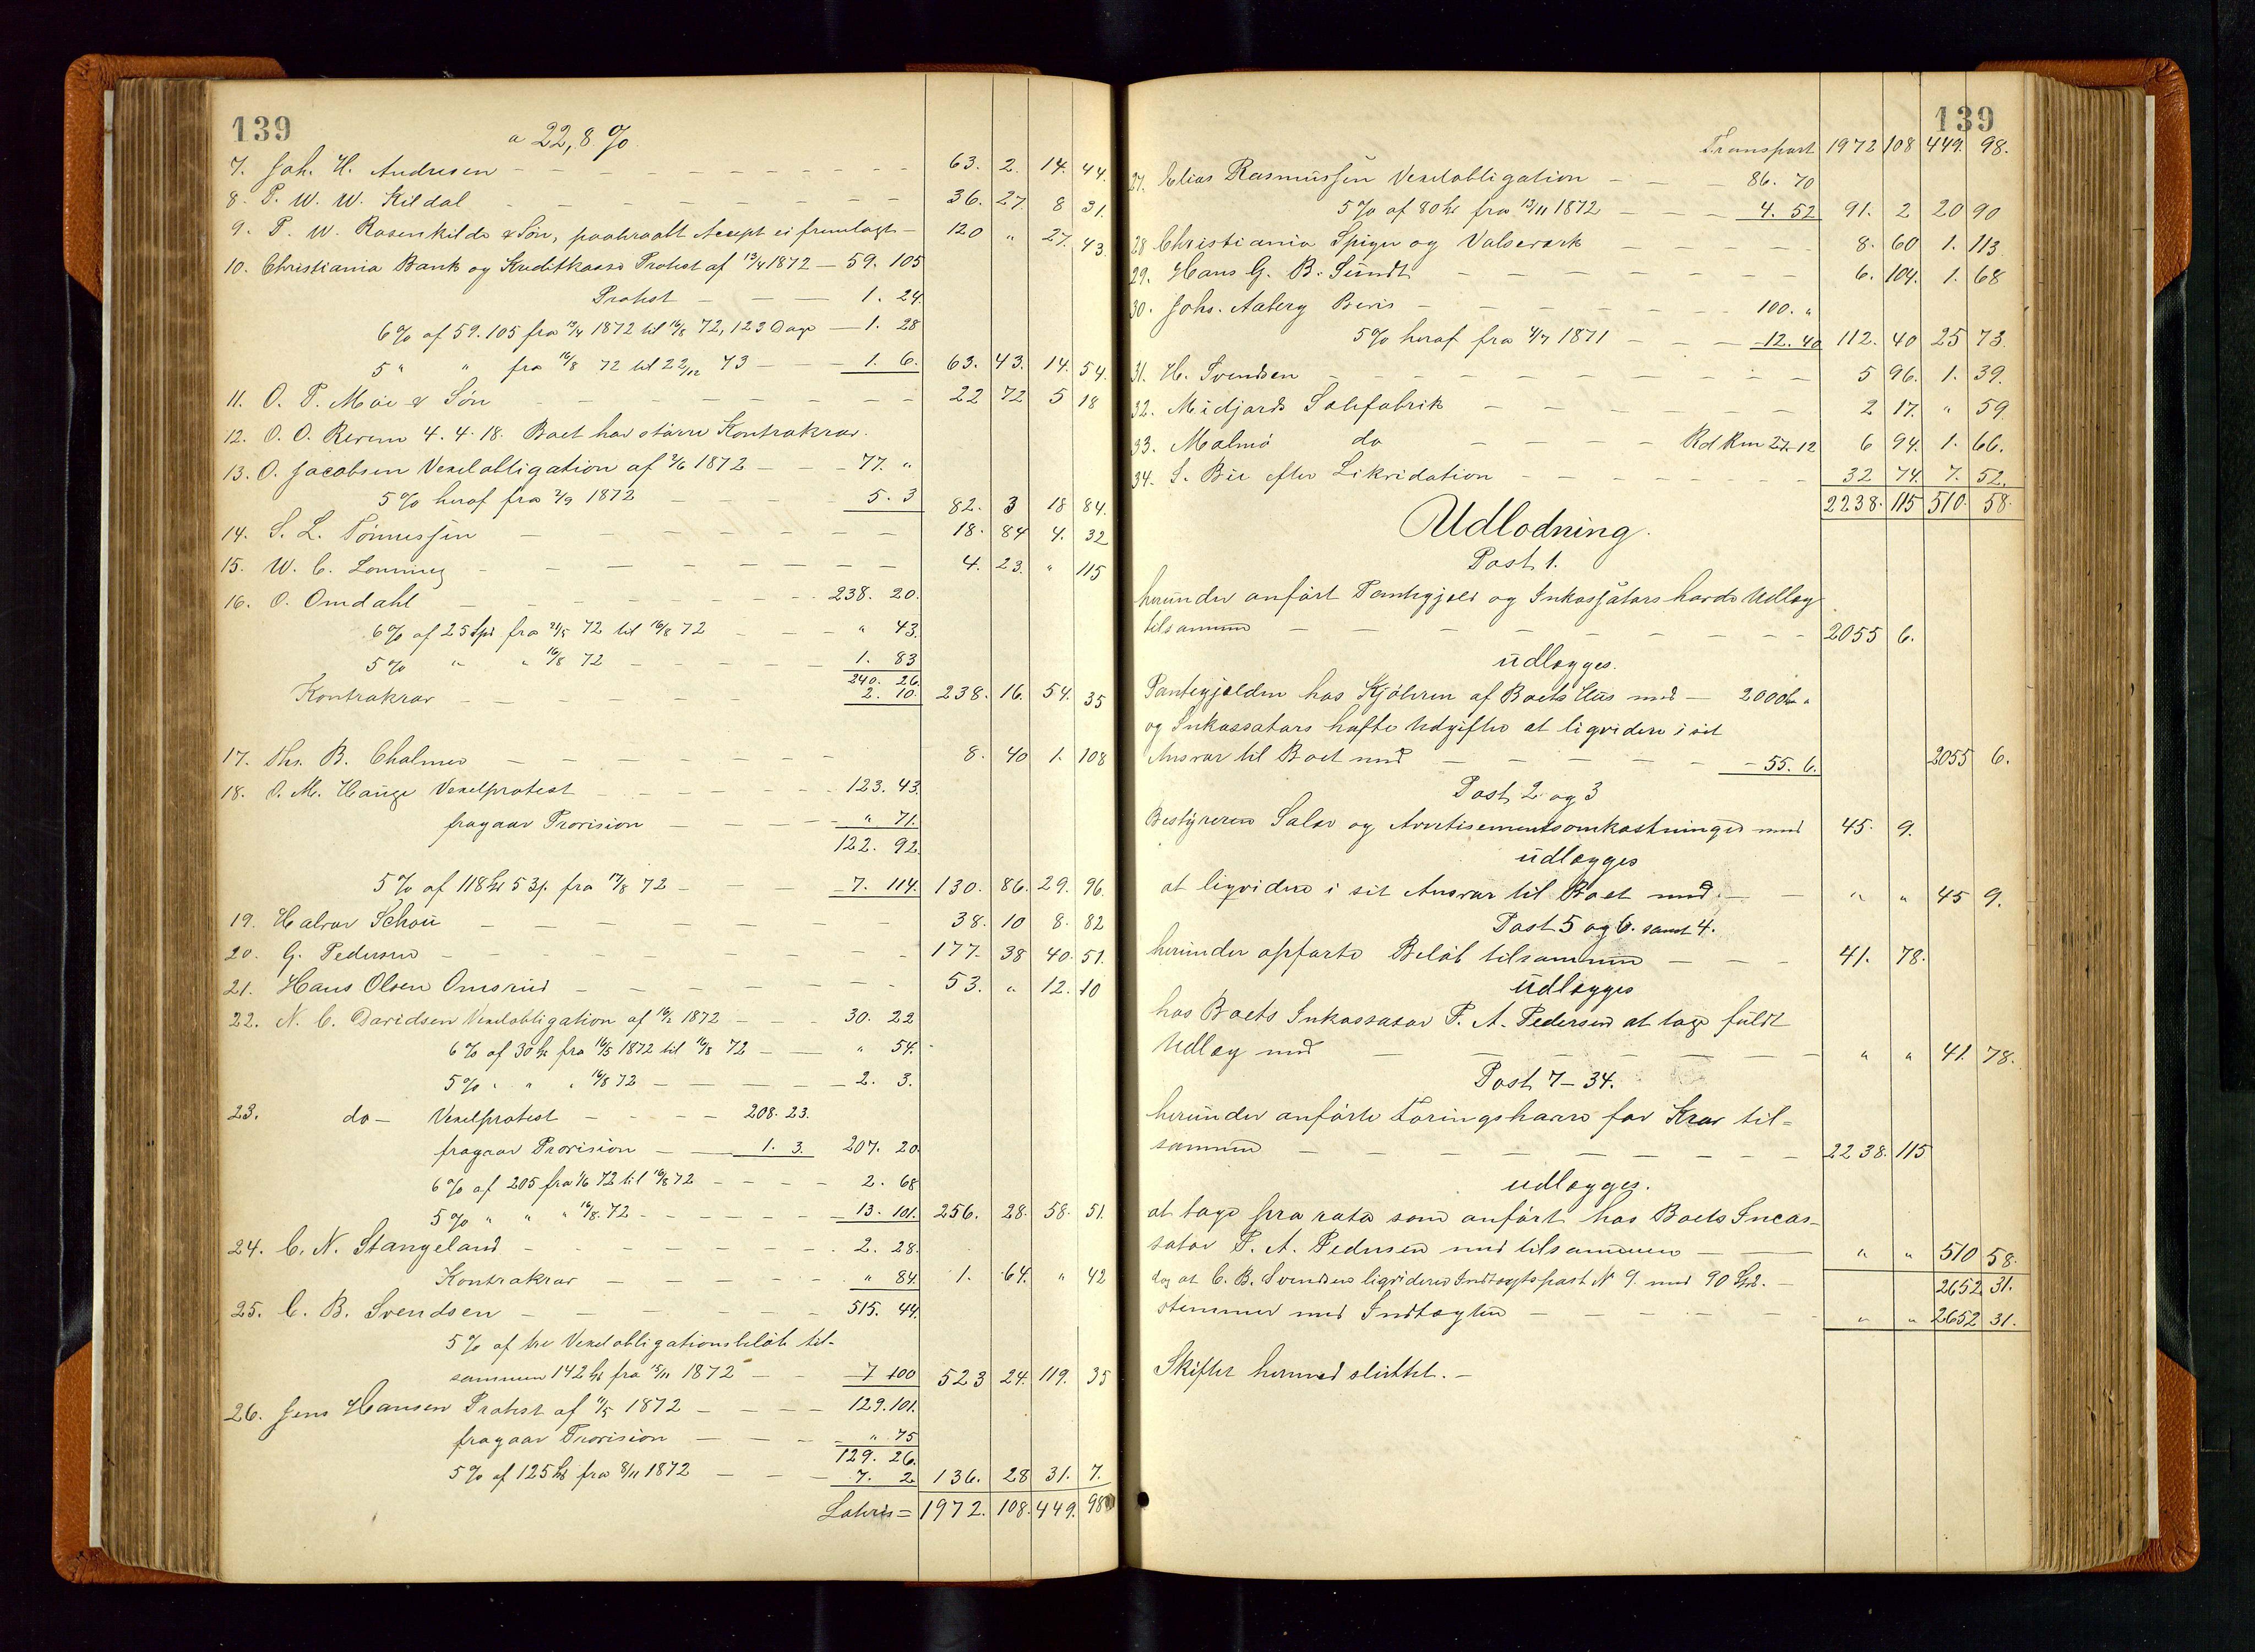 139
a 22,8 %
7. Joh. H. Andresen — 63. 2. 14. 44.
8. P. W. W. Kildal — 36. 27. 8 31.
9. P. W. Rosenkilde & Søn, paaberaabt Accept ei fremlagt — 120 " 27. 43.
10. Christiania Bank og Kreditkasse Protest af 13/4 1872 — 59. 105
Protest — 1. 24.
6% af 59. 105 fra 13/4 1872 til 16/8 72, 123 Dage — 1. 28
5 " " fra 16/8 72 til 22/12 73 — 1. 6. 63. 43. 14. 54.
11. O. T. Moe & Søn — 22 72 5 18
12. O. O. Revem 4. 4. 18. Boet har større Kontrakrav.
13. O. Jacobsen Vexelobligation af 2/6 1872 — 77. "
5% heraf fra 2/9 1872 — 5. 3 82. 3 18 84.
14. S. L. Tönnessen — 18. 84 4. 32
15. W. C. Lonning — 4. 23. " 115
16. O. Omdahl — 238. 20.
6% af 25 Spd fra 21/5 72 til 16/8 72 — " 43.
5% " " 16/8 72 — 1. 83
240. 26.
Kontrakrav — 2. 10. 238. 16. 54. 35
17. Ths. B. Chalmer — 8. 40 1. 108
18. O. M. Hauge Vexelprotest — 123. 43.
fragaar Provision — " 71.
122. 92.
5% af 118 Spd 53 s. fra 17/8 72 — 7. 114. 130. 86. 29. 96.
19. Halvor Schou — 38. 10 8. 82
20. G. Pedersen — 177. 38 40. 51.
21. Hans Olsen Omsrud — 53. " 12. 10
22. N. C. Davidsen Vexelobligation af 16/2 1872 — 30. 22
6% af 30 Spd fra 16/5 1872 til 16/8 72 — " 54.
5% " " " 16/8 72 — 2. 3.
23. do — Vexelprotest — 208. 23.
fragaar Provision — 1. 3. 207. 20.
6% af 205 fra 1/6 72 til 16/8 72 — 2. 68
5% " " " 16/8. 72 — 13. 101. 256. 28. 58. 51.
24. C. N. Stangeland — 2. 28.
Kontrakrav — " 84. 1. 64. " 42
25. C. B. Svendsen — 515. 44.
5% af tre Vexelobligationsbeløb til-
sammen 142 Spd fra 15/11 1872 — 7 100 523 24. 119. 35
26. Jens Hansen Protest af 11/5 1872 — 129. 101.
fragaar Provision — " 75
129. 26.
5% af 125 Spd fra 8/11 1872 — 7. 2 136. 28 31. 7.
Lateris = 1972. 108. 449. 98
139
Transport 1972 108 449. 98.
27. Elias Rasmussen Vexelobligation — 86. 70
5% af 80 Spd fra 13/11 1872 — 4. 52 91. 2 20 90
28 Christiania Spiger og Valseværk — 8. 60 1. 113
29. Hans G. B. Sundt — 6. 104. 1. 68
30. Johs. Aaberg Bevis — 100. "
5% heraf fra 4/7 1871 — 12. 40 112. 40 25 73.
31. H. Svendsen — 5 96. 1. 39.
32. Midjords Sæbefabrik — 2 17. " 59
33. Malmö do — Rd Rm 27. 12 6 94. 1. 66.
34. S. Bie efter Likvidation — 32 74. 7. 52.
2238. 115 510. 58.
Udlodning.
Post 1.
herunder anført Pantegjæld og Inkassators havde Udlæg
tilsammen — 2055 6.
udlægges.
Pantegjælden hos Kjøberen af Boets Hus med — 2000 Spd "
og Inkassators hafte Udgifter at liqvidere i sit
Ansvar til Boet med — 55. 6. 2055 6.
Post 2 og 3
Bestyrerens Salær og Avertisementsomkostninger med 45. 9.
udlægges
at liqvidere i sit Ansvar til Boet med. — " " 45 9.
Post 5 og 6. samt 4.
herunder opførte Beløb tilsammen — 41. 78.
udlægges
hos Boets Inkassator P. A. Pedersen at tage fuldt
Udlæg med — " " 41. 78.
Post 7 – 34.
herunder anførte Fordringshavere for Krav til-
sammen — 2238. 115
udlægges.
at tage pro rata som anført hos Boets Incas-
sator P. A. Pedersen med tilsammen — " " 510 58.
dog at C. B. Svendsen liqviderer Indtægtspost N 9. med 90 Spd. — 2652. 31.
stemmer med Indtægten — " " 2652 31.
Skiftet hermed sluttet. —